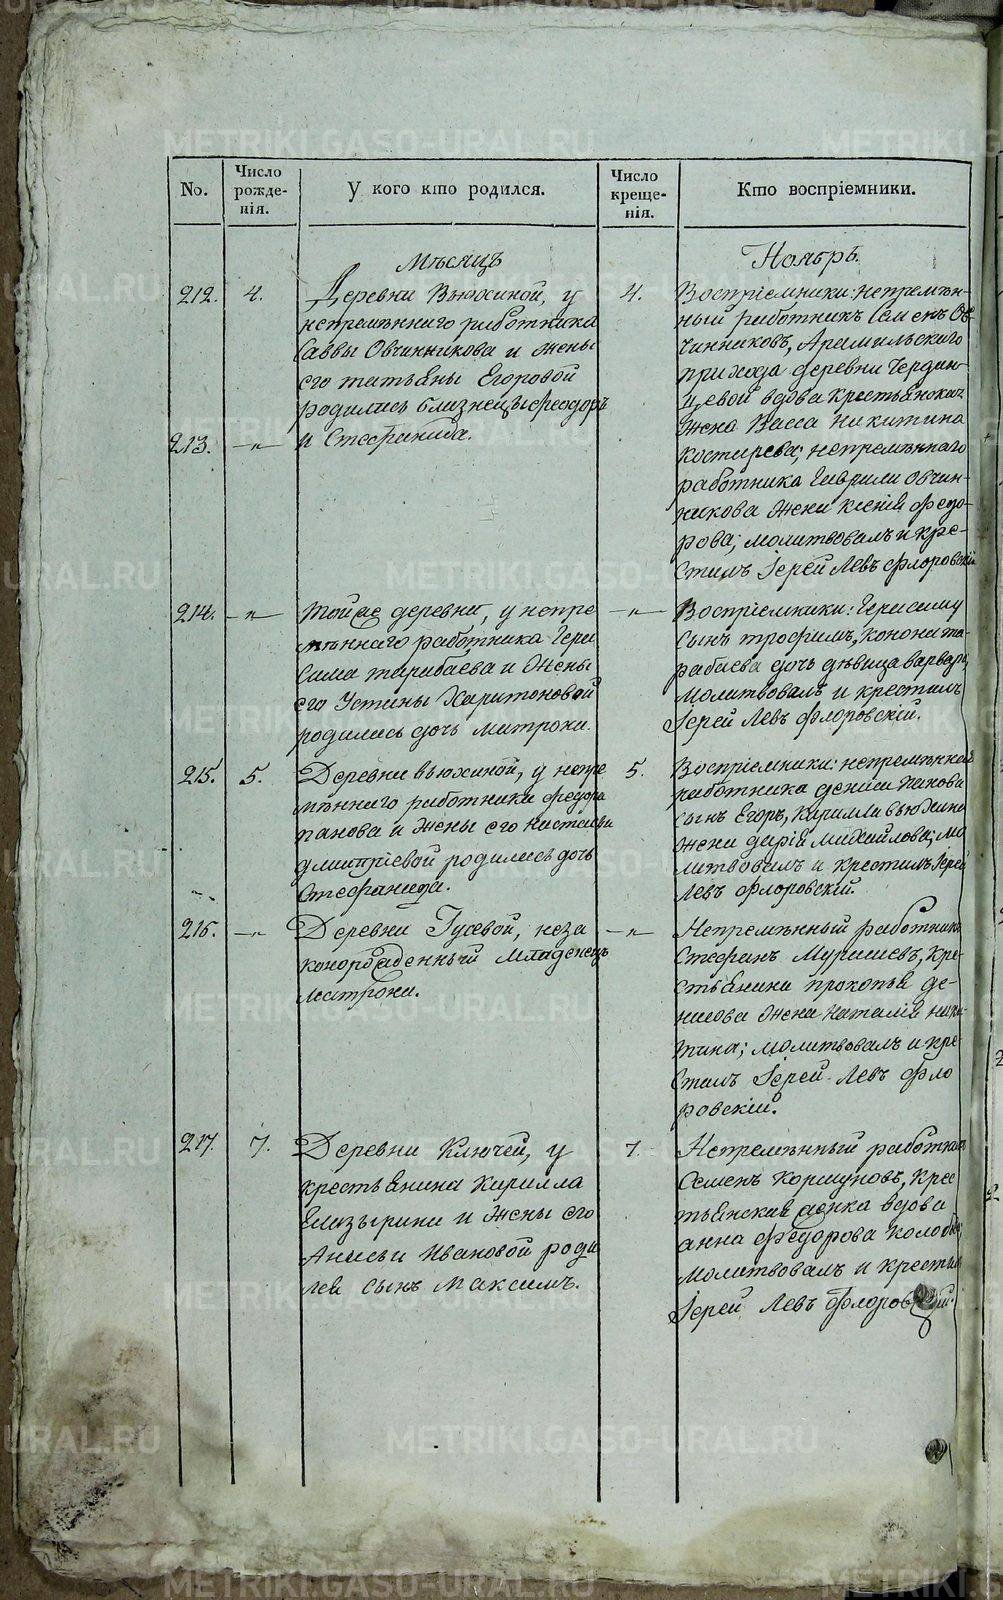 METRIKI.GASO-URAL.RU
No.
Число рожде-нія.
У кого кто родился.
Число креще-нія.
Кто воспріемники.
Мѣсяцъ
Ноябрь.
212.
4.
Деревни Вьюхиной, у
непремѣннаго работника
Саввы Овчинникова и жены
его Татьяны Егоровой
родились близнецы Феодоръ
213.
—"—
и Стефанида.
4.
Воспріемники: непремѣн-
ный работникъ Семенъ Ов-
чинниковъ, Арамильскаго
прихода деревни
вдова крестьянская
жена Васса Никитина
Костырева; непремѣннаго
работника Гаврилы Овчин-
никова жена Ксенія Федо-
рова; молитвовалъ и кре-
стилъ Іерей Левъ Флоровскій
214.
—"—
Той же деревни, у непре
мѣннаго работника Гера
сима Тарабаева и жены
его Устины Харитоновой
родилась дочь Матрона.
—"—
Воспріемники: Герасима
сынъ Трофимъ, Конона Та
рабаева дочь дѣвица Варвара
молитвовалъ и крестилъ
Іерей Левъ Флоровскій.
215.
5.
Деревни Вьюхиной, у непре
мѣннаго работника Федора
Панова и жены его Настасьи
Дмитріевой родилась дочь
Стефанида.
5.
Воспріемники: непремѣннаго
работника Дениса Панова
сынъ Егоръ, Кирилла Вьюхина
жена Дарія Михайлова; мо
литвовалъ и крестилъ Іерей
Левъ Флоровскій.
216.
—"—
Деревни Гусевой, неза
конорожденный младенецъ
Матрона.
—"—
Непремѣнный работникъ
Стефанъ Мурашевъ, кре-
стьянина Прокопья Де-
нисова жена Наталія Ники-
тина; молитвовалъ и кре
стилъ Іерей Левъ Фло
ровскій.
217.
7.
Деревни Ключей, у
крестьянина Кирилла
Елизырина и жены его
Анисьи Ивановой роди
лся сынъ Максимъ.
7.
Непремѣнный работникъ
Семенъ Коршуновъ, крес
тьянская женка вдова
Анна Федорова
молитвовалъ и крестилъ
Іерей Левъ Флоровскій.